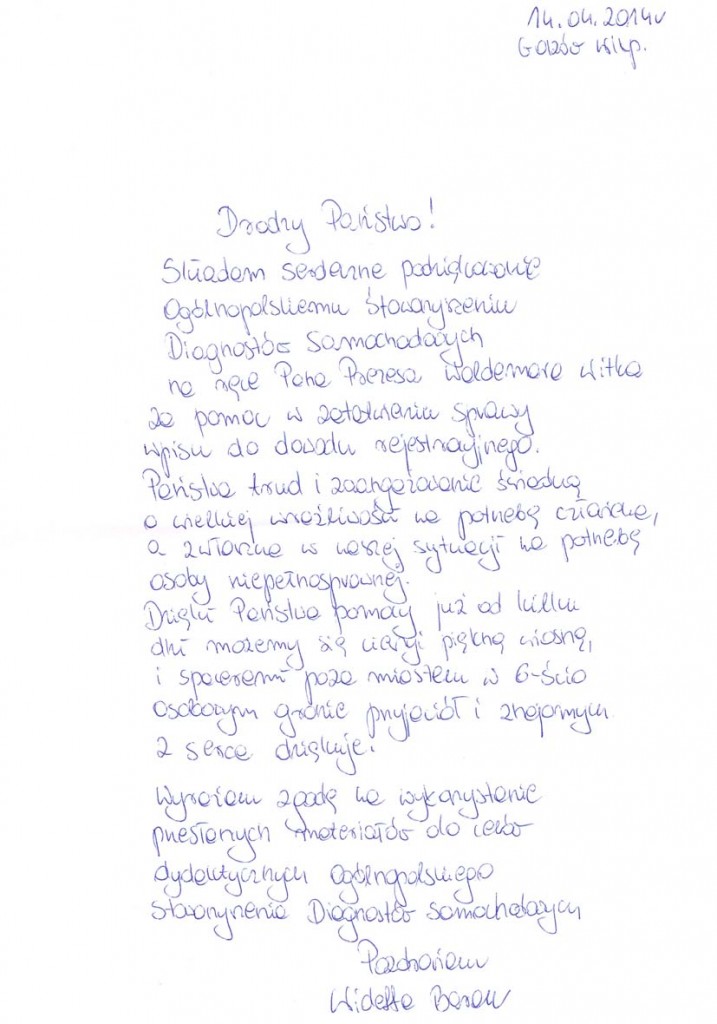 14.04.2014r
Gorzów Wlkp.
Drodzy Państwo!
Składam serdeczne podziękowanie
Ogólnopolskiemu Stowarzyszeniu
Diagnostów Samochodowych
na ręce Pana Prezesa Waldemara Witka
za pomoc w załatwieniu sprawy
wpisu do dowodu rejestracyjnego.
Państwa trud i zaangażowanie świadczą
o wielkiej wrażliwości na potrzebę człowieka,
a zwłaszcza w naszej sytuacji na potrzebę
osoby niepełnosprawnej.
Dzięki Państwa pomocy już od kilku
dni możemy się cieszyć piękną wiosną,
i spacerami poza miastem w 6-ścio
osobowym gronie przyjaciół i znajomych
z serca dziękuję.
Wyrażam zgodę na wykorzystanie
przesłanych materiałów do celów
dydaktycznych Ogólnopolskiego
Stowarzyszenia Diagnostów Samochodowych
Pozdrawiam
Baran